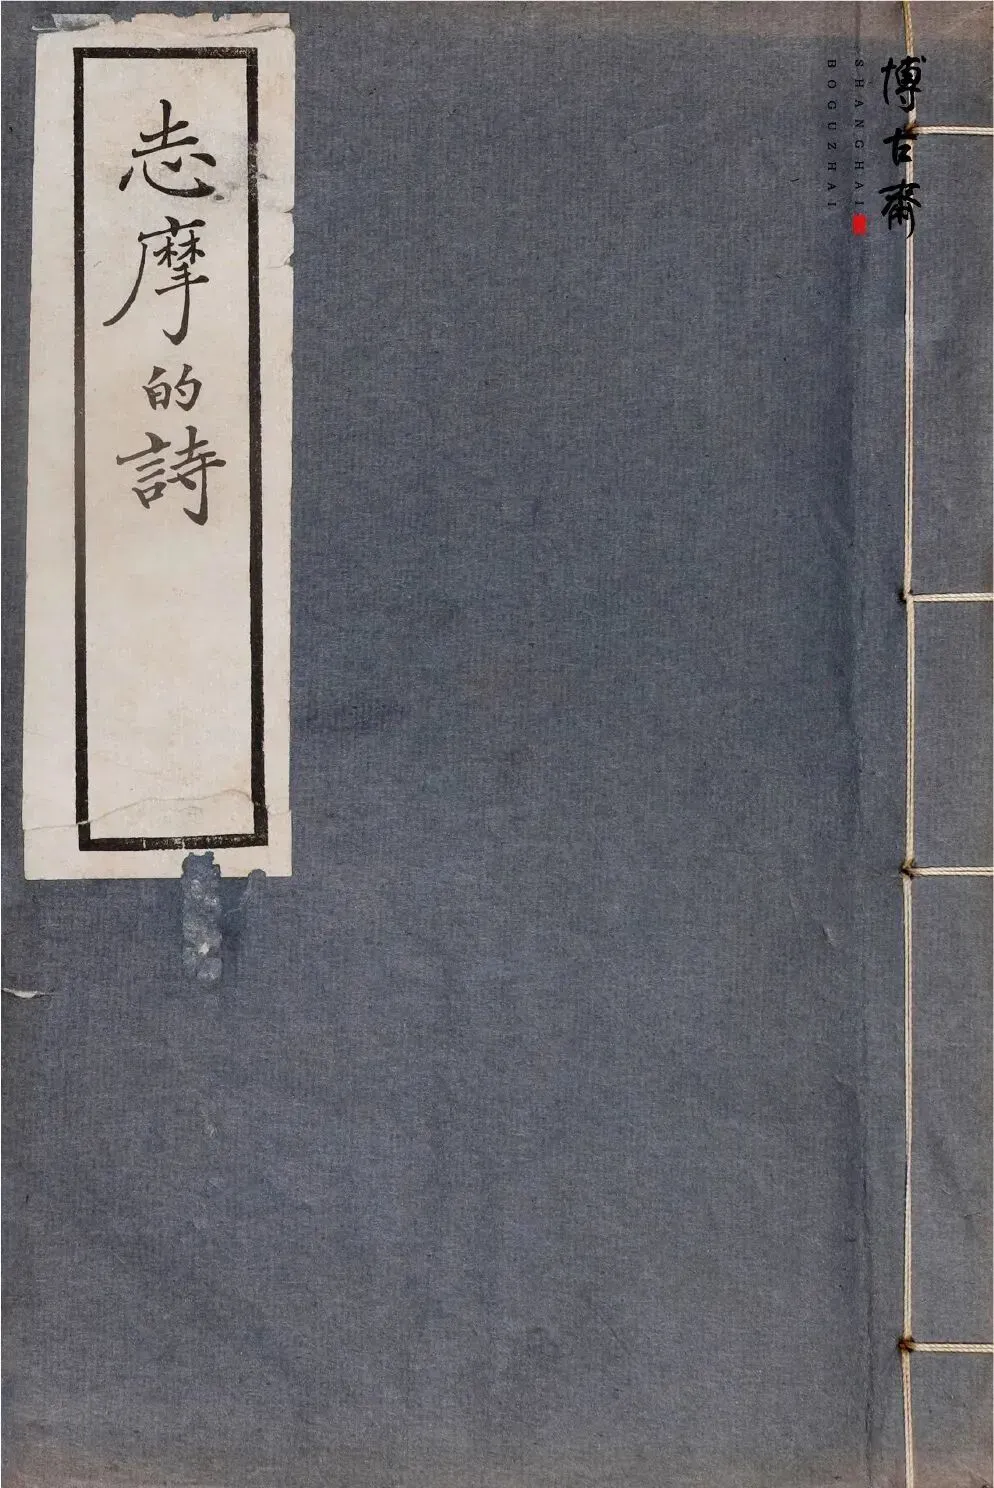 志摩的詩
博古齋
SHANGHAI
BOGUZHAI